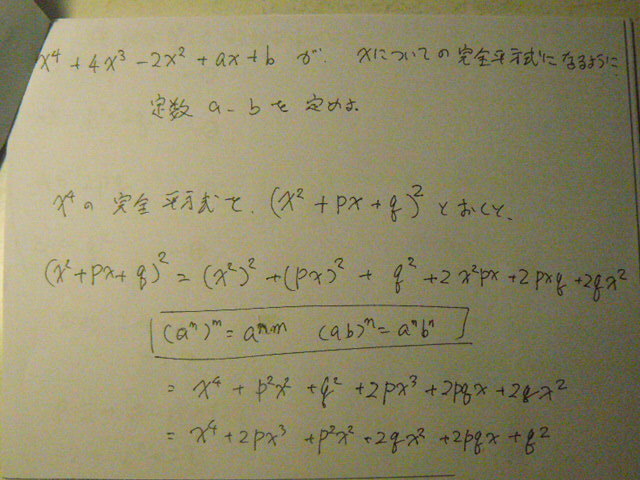 x⁴ + 4x³ - 2x² + ax + b が、xについての完全平方式になるように
定数 a - b を 定めよ
x⁴の 完全平方式を、(x² + px + q)² とおくと、
(x² + px + q)² = (x²)² + (px)² + q² + 2x²px + 2pxq + 2qx²
(aⁿ)ᵐ = aⁿᵐ (ab)ⁿ = aⁿbⁿ
= x⁴ + p²x² + q² + 2px³ + 2pqx + 2qx²
= x⁴ + 2px³ + p²x² + 2qx² + 2pqx + q²